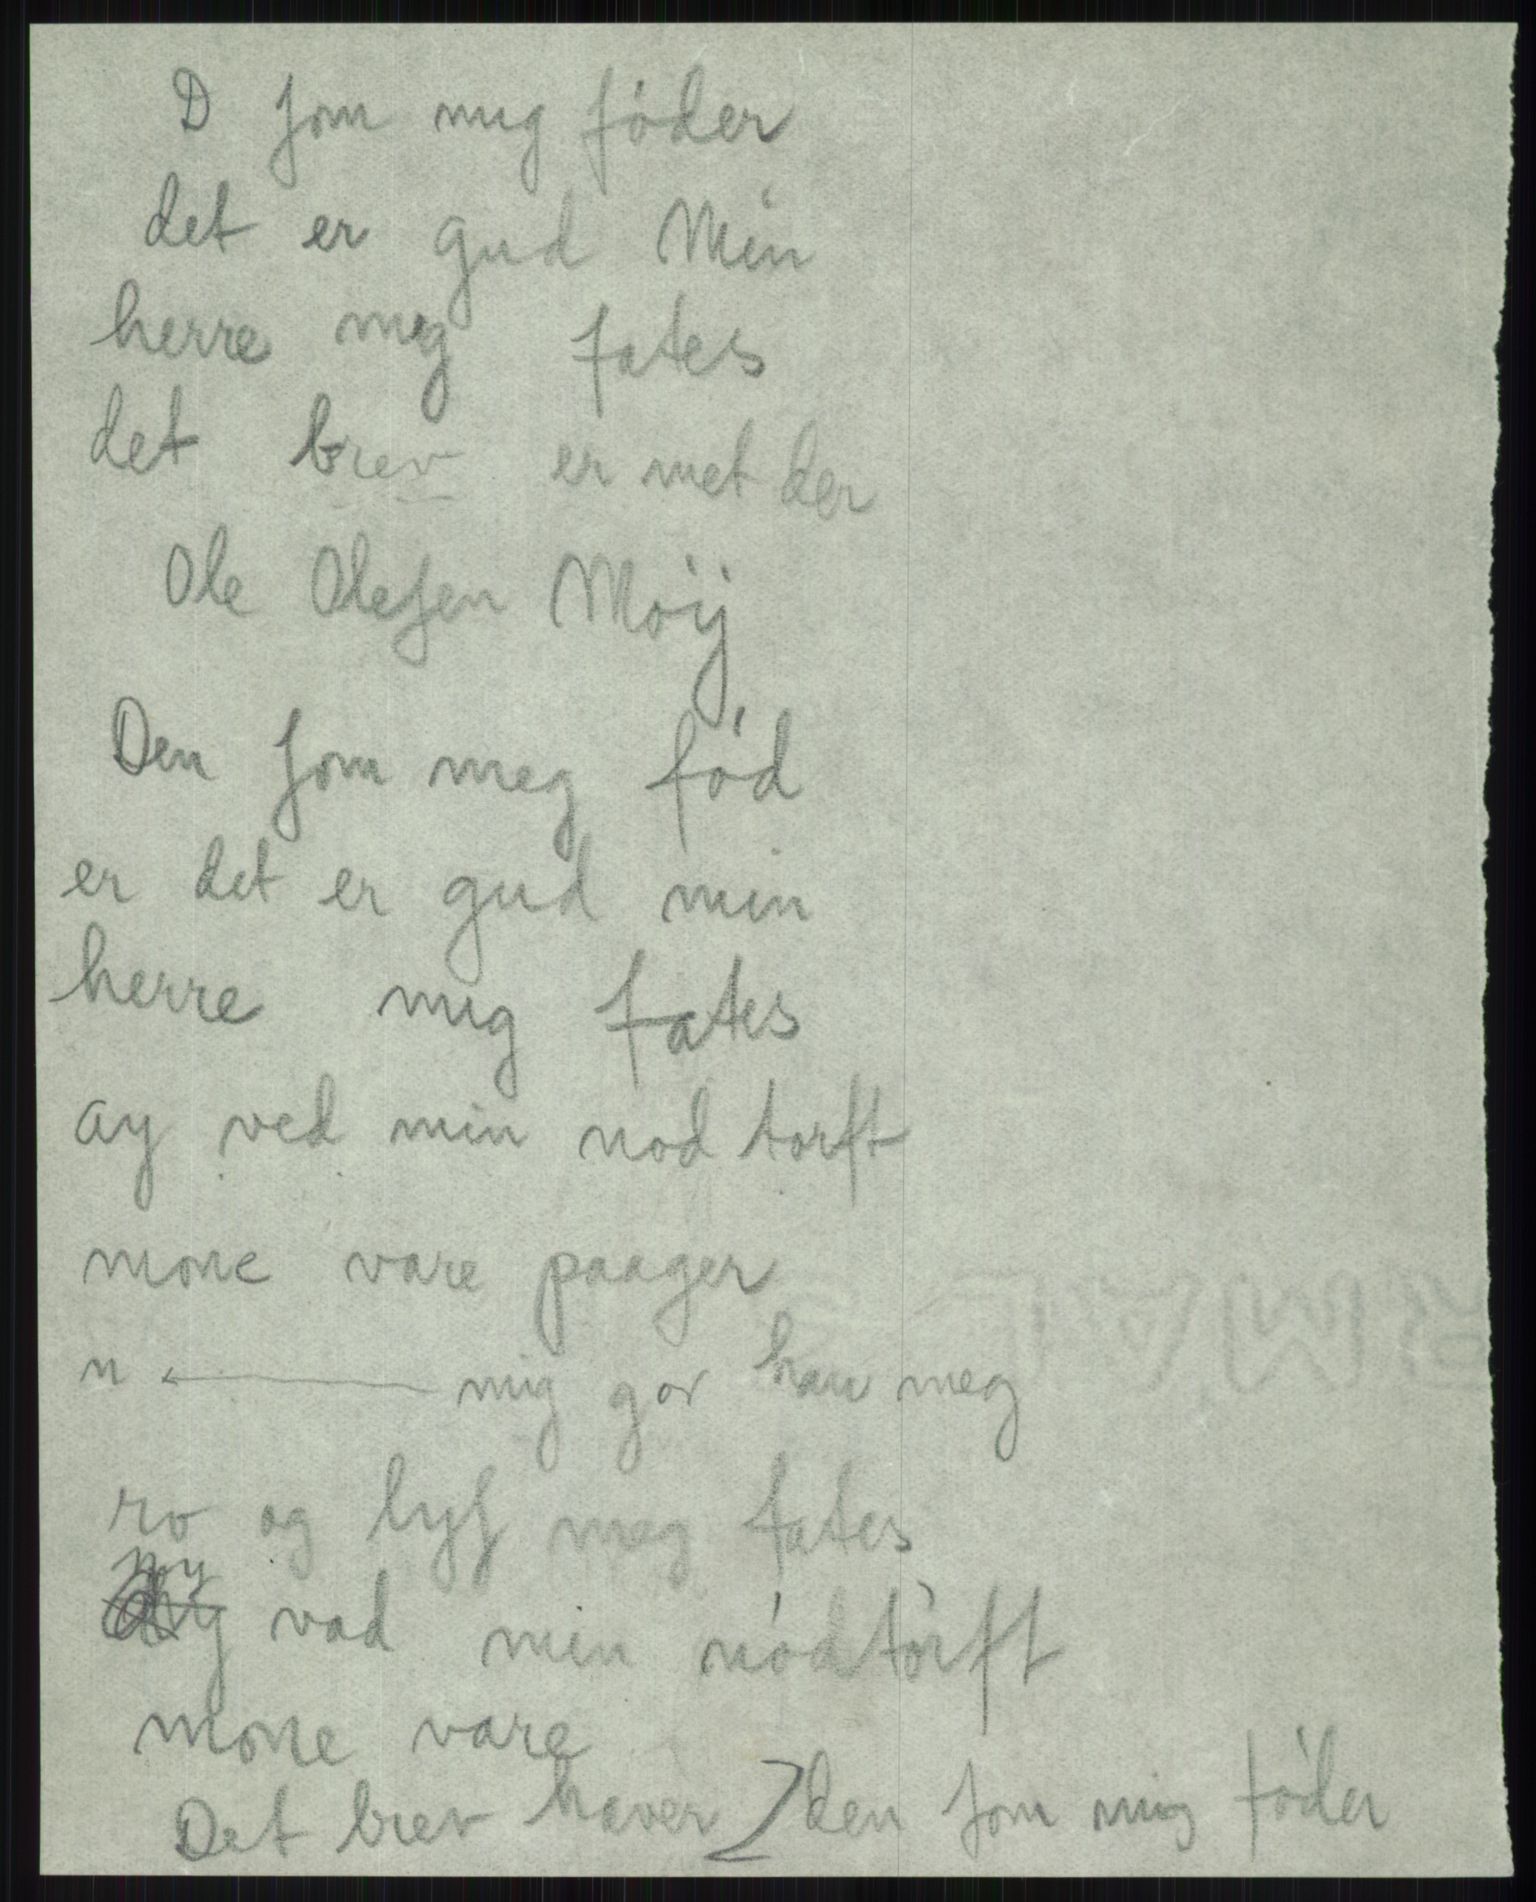 D som mig føder
det er gud Min
herre mig fates
det brev er met der
Ole Olesen Moij
Den som meg fød
er det er gud min
herre mig fates
ay ved min nod torft
mone vare paager
n ← mig gor han meg
ro og lyss meg fates
ny vad min nódtórft
mone vare
Det brev haver den som mig føder